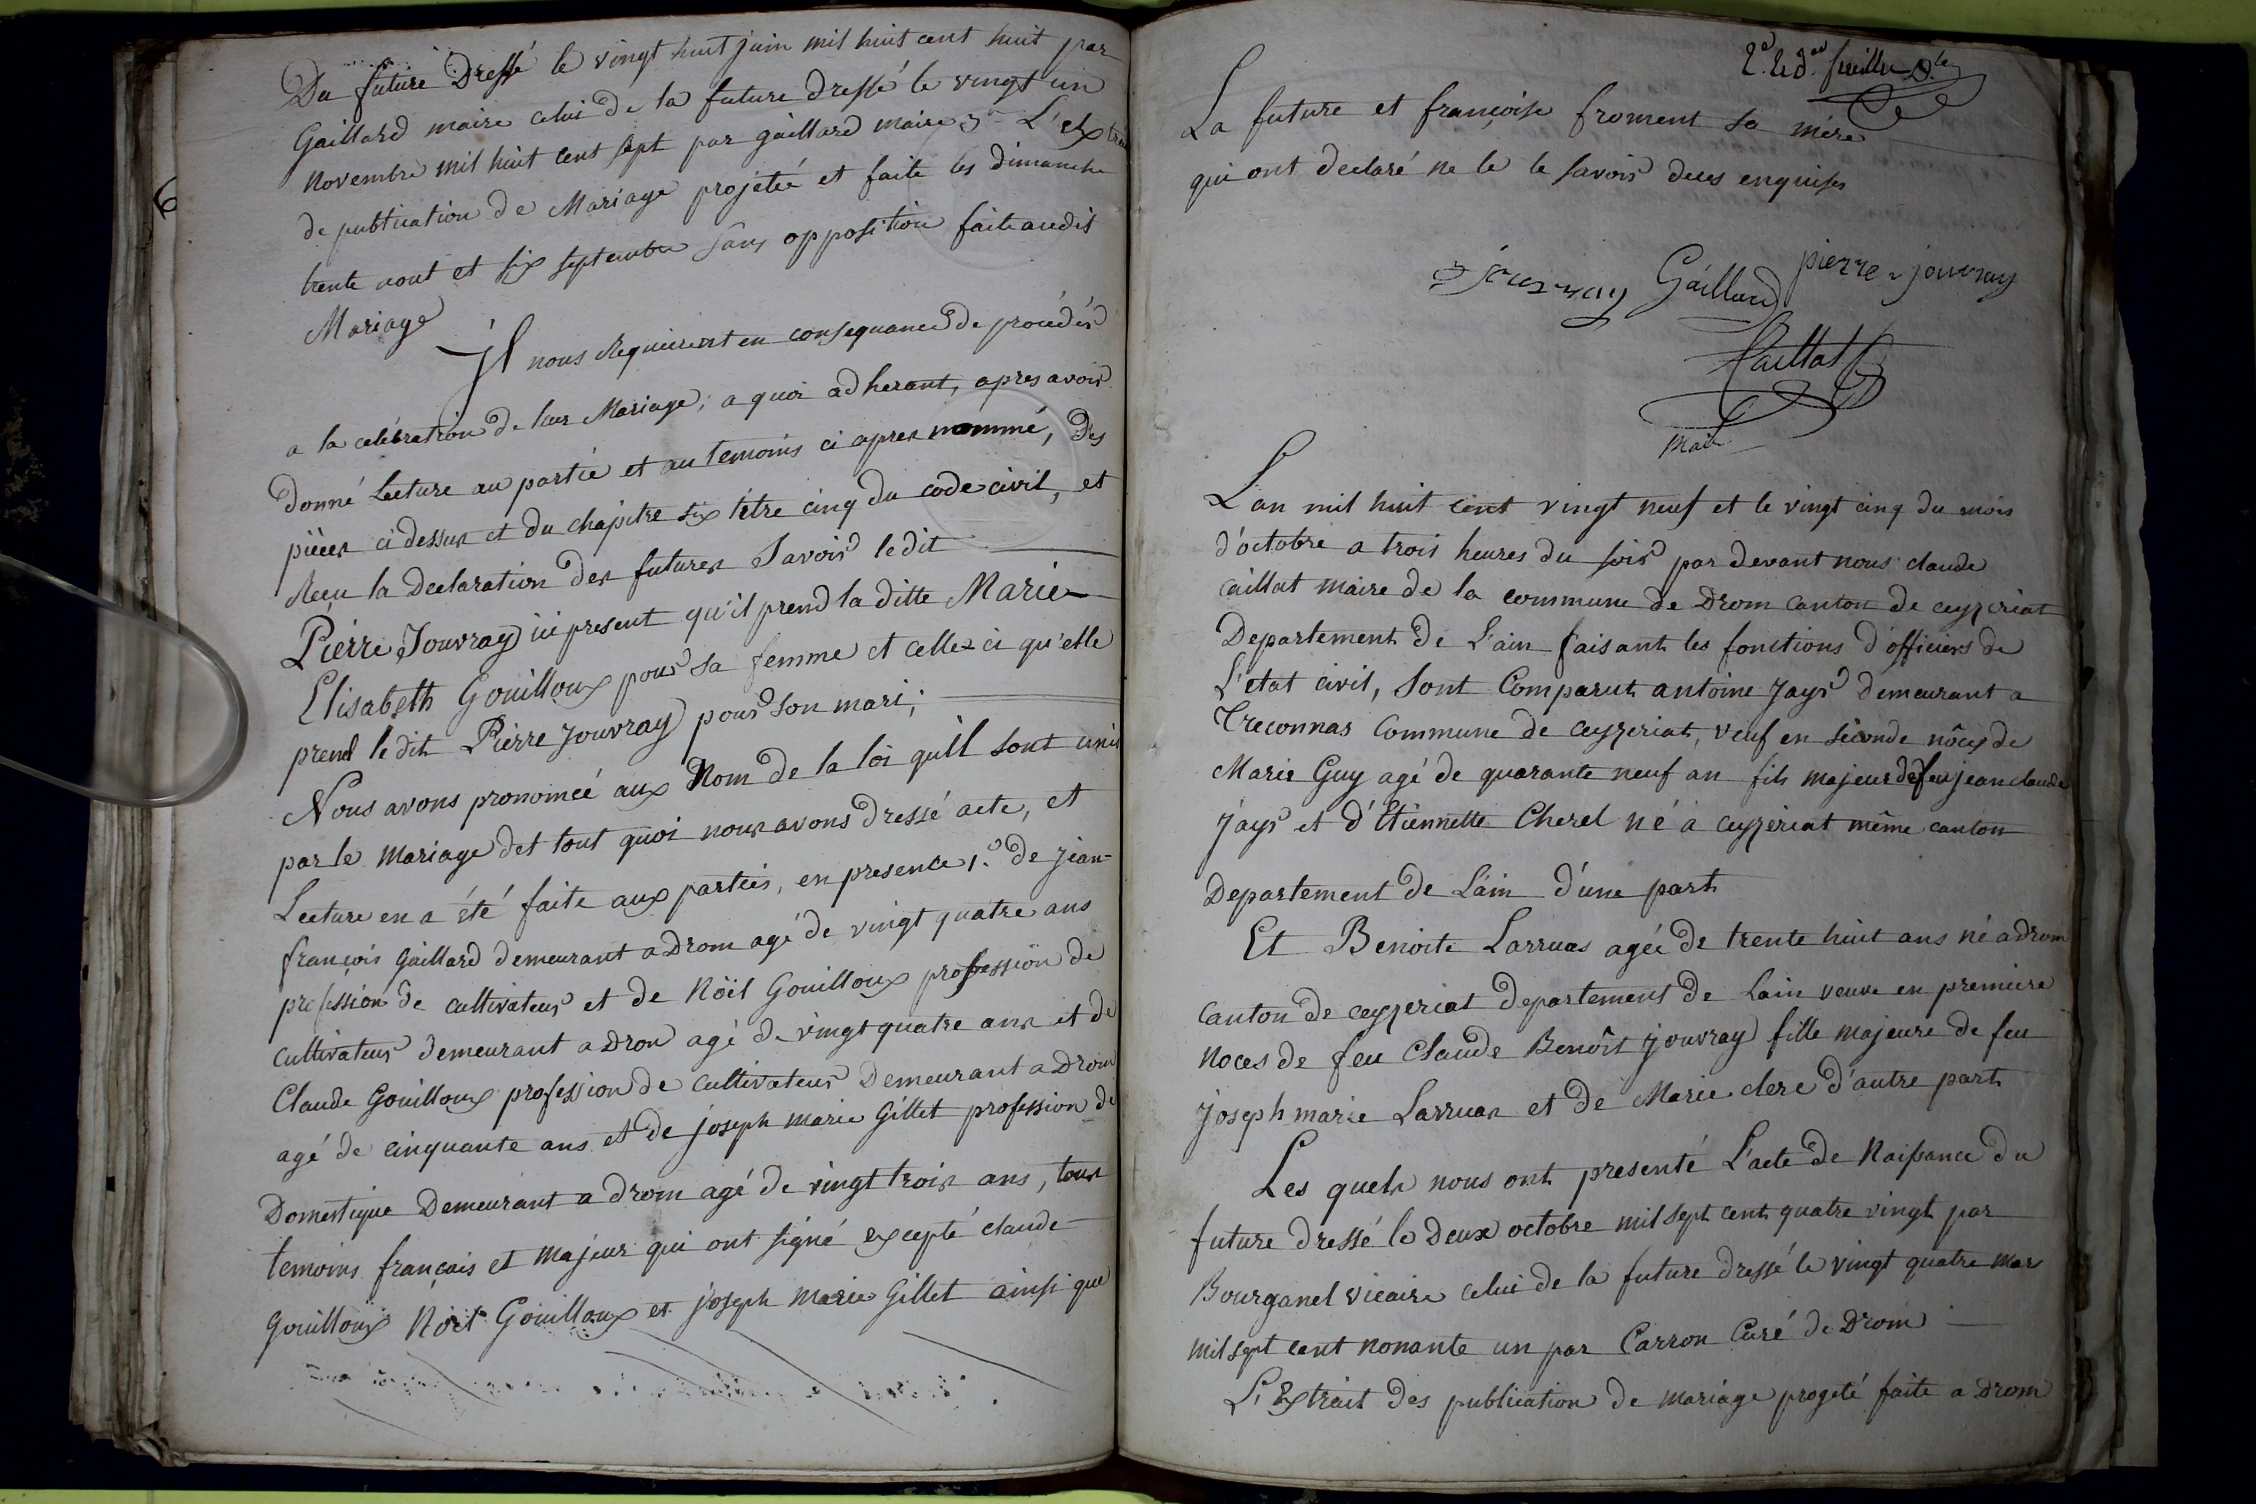 Du future Dressé le vingt huit juin mil huit cent huit par
Gaillard maire celui de la future dressé le vingt un
Novembre mil huit cent sept par gaillard maire 3° L'extrai
de publication de Mariage projetée et faite les dimanche
trente aout et six septembre sans opposition faite audit
Mariage
Il nous Requierent en consequance de procéder
a la celébration de leur Mariage; a quoi adherant, apres avoir
donné Lecture au partie et au temoins ci apres nommé, des
pièces ci dessus et du chapitre six titre cinq du code civil, et
Reçu la Declaration des futures Savoir le dit
Pierre Jouvray ici present qu'il prend la ditte Marie
Elisabeth Gouilloux pour sa femme et celle-ci qu'elle
prend le dit Pierre Jouvray pour son mari;
Nous avons prononcé aux Nom de la loi qu'il sont unis
par le mariage det tout quoi nous avons dressé acte, et
Lecture en a été faite aux parties, en presence 1.° de jean-
françois Gaillard demeurant a Drom agé de vingt quatre ans
profession de cultivateur et de Nöel Gouilloux profession de
cultivateur demeurant a Drom agé de vingt quatre ans et de
Claude Gouilloux profession de cultivateur Demeurant a Drom
agé de cinquante ans et de joseph marie Gillet profession de
Domestique Demeurant a drom agé de vingt trois ans, tous
temoins français et majeur qui ont signé excepté claude
Gouilloux Nöel Gouilloux et joseph marie Gillet ainsi que
2.e feuillet
La future et françoise froment sa mere
qui ont declaré ne le le savoir de ces enquises
jouvray Gaillard pierre jouvray
Caillat
Maire
L'an mil huit cent vingt neuf et le vingt cinq du mois
d'octobre a trois heures du soir par devant nous claude
Caillat maire de la commune de Drom canton de ceyzeriat
Departement de L'ain faisant les fonctions d'officiers de
L'etat civil, Sont Comparut antoine Jays demeurant a
Treconnas Commune de Ceyzeriat, veuf en séconde nôces de
Marie Guy agé de quarante neuf an fils majeur de feu jean claude
Jays et d'Etiennette Cherel né à ceyzeriat même canton
Departement de L'ain d'une part
Et Benoite Larruas agée de trente huit ans né a drom
Canton de ceyzeriat departement de Lain veuve en premiere
Noces de feu Claude Benoît jouvray fille majeure de feu
joseph marie Larruas et de Marie clere d'autre part
Les quels nous ont presenté L'acte de Naissance du
future dressé le Deux octobre mil sept cent quatre vingt par
Bourganel vicaire celui de la future dressé le vingt quatre mar
mil sept cent nonante un par Carron Curé de Drom
L'Extrait des publication de mariage projeté faite a Drom